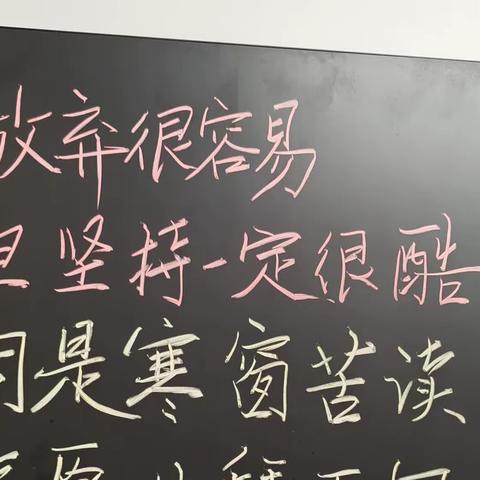 放弃很容易
但坚持一定很酷
同是寒窗苦读